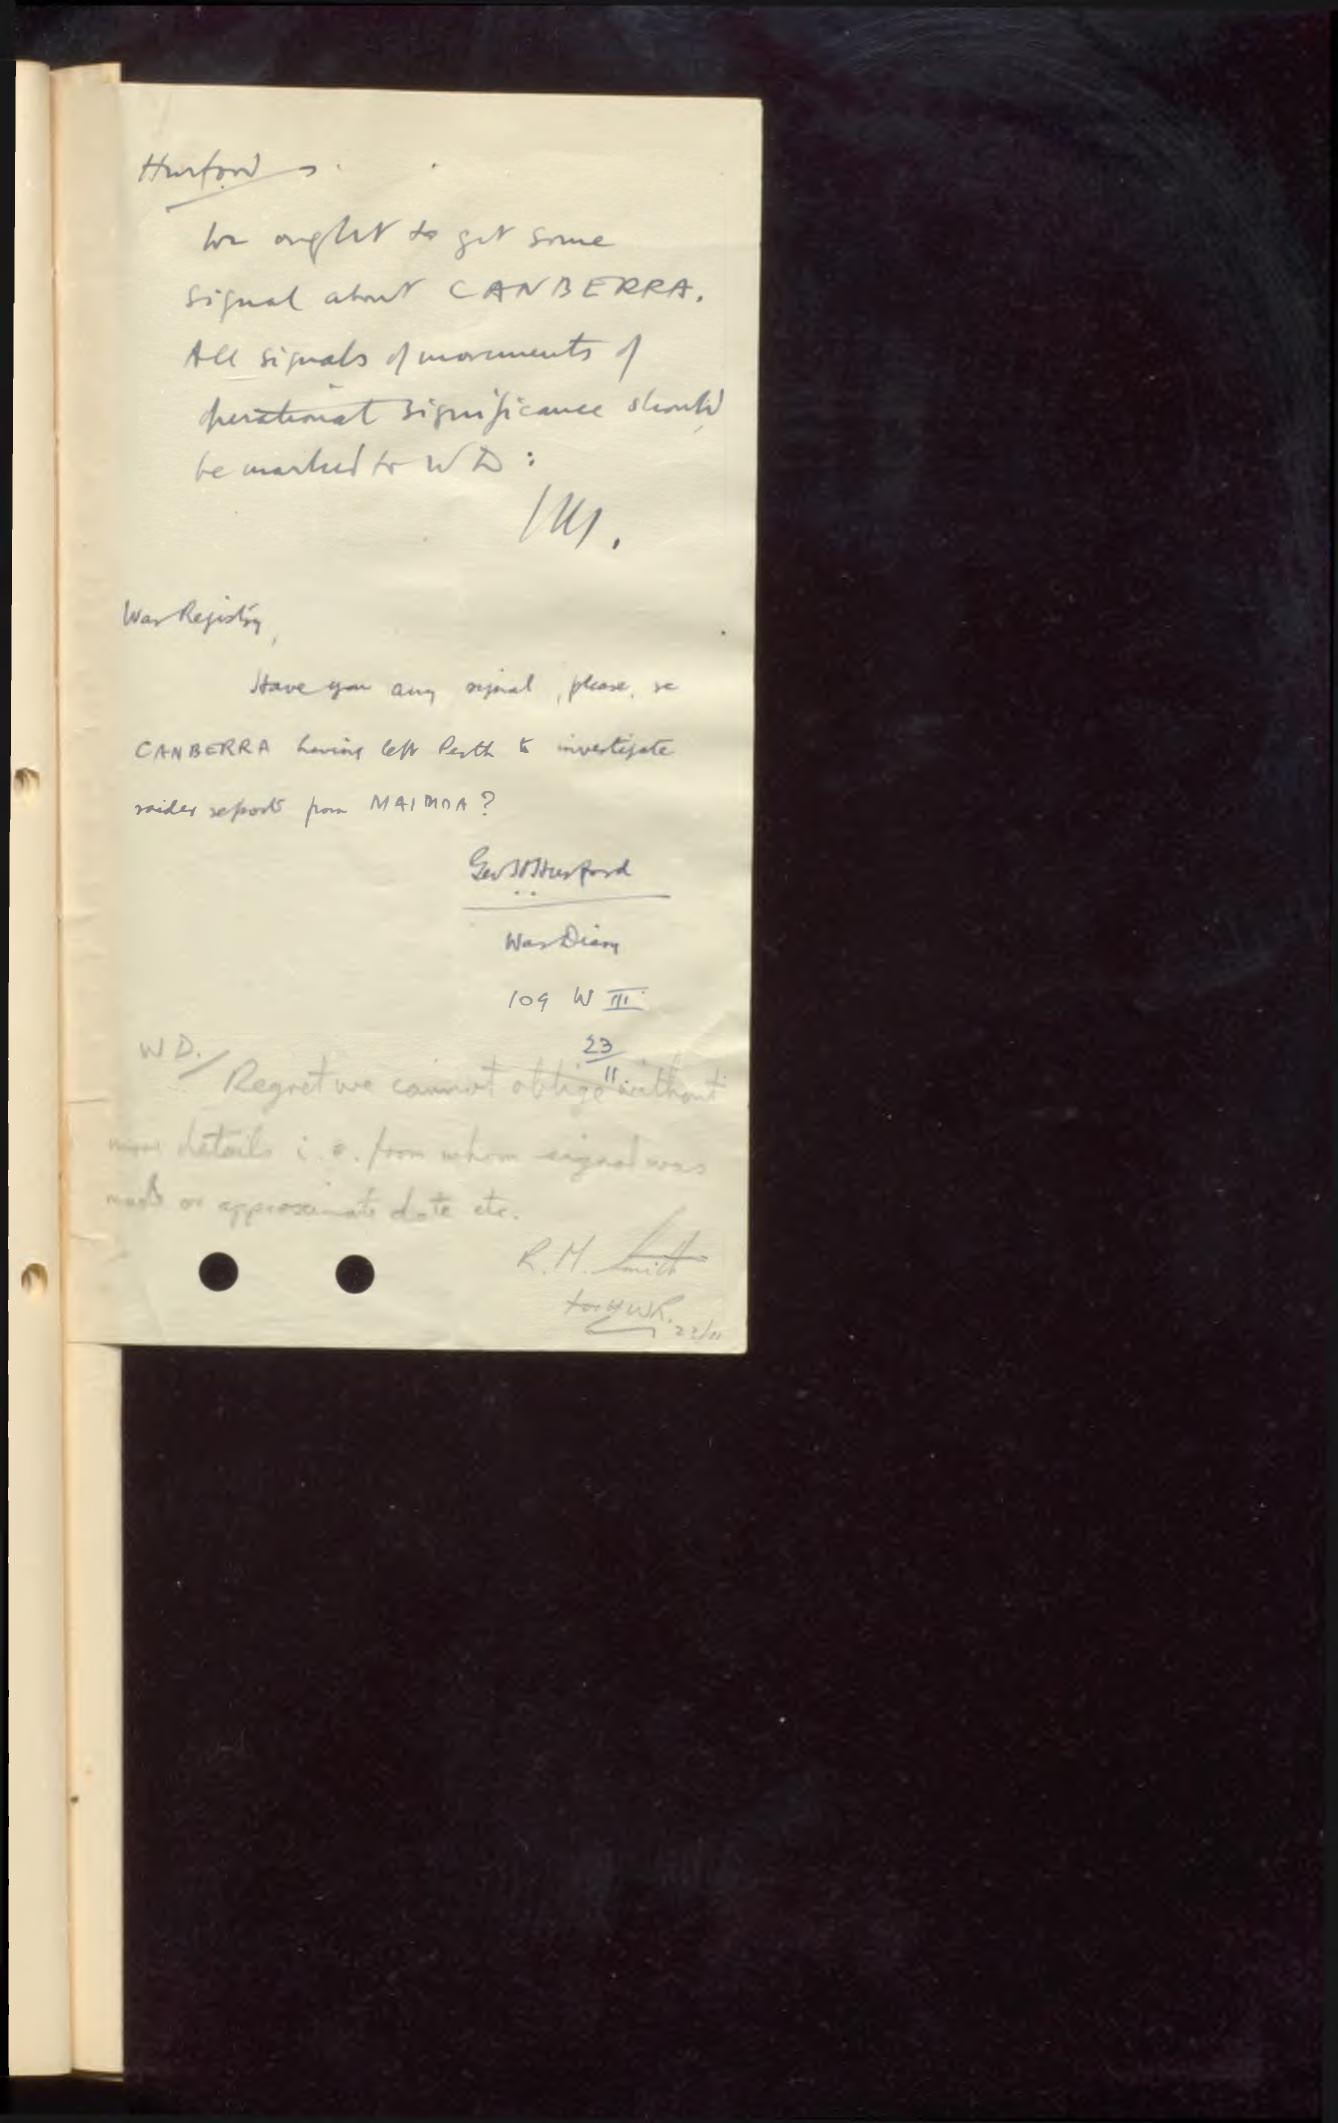 Hurford
We ought to get some
signal about CANBERRA.
All signals of movements of
operational significance should
be marked to WD:
War Registry,
Have you any signal, please, re
CANBERRA having left Perth to investigate
raider reports from MAIMOA?
Geo Hurford
War Diary
109 W III
23
11
W D./
Regret we cannot oblige without
more details i.e. from whom signal was
made or approximate date etc.
R. M. Smith
23/11